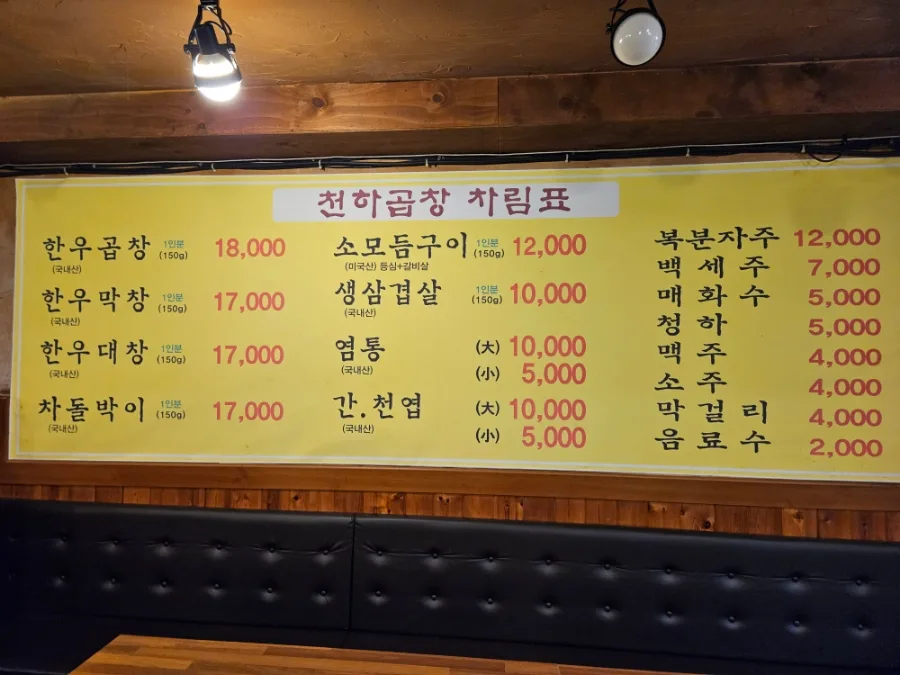 천하곱창 차림표
한우곱창 1인분 (150g) 18,000
(국내산)
한우막창 1인분 (150g) 17,000
(국내산)
한우대창 1인분 (150g) 17,000
(국내산)
차돌박이 1인분 (150g) 17,000
(국내산)
소모듬구이 1인분 (150g) 12,000
(미국산) 등심+갈비살
생삼겹살 1인분 (150g) 10,000
(국내산)
염통 (大) 10,000
(국내산) (小) 5,000
간.천엽 (大) 10,000
(국내산) (小) 5,000
복분자주 12,000
백세주 7,000
매화수 5,000
청하 5,000
맥주 4,000
소주 4,000
막걸리 4,000
음료수 2,000